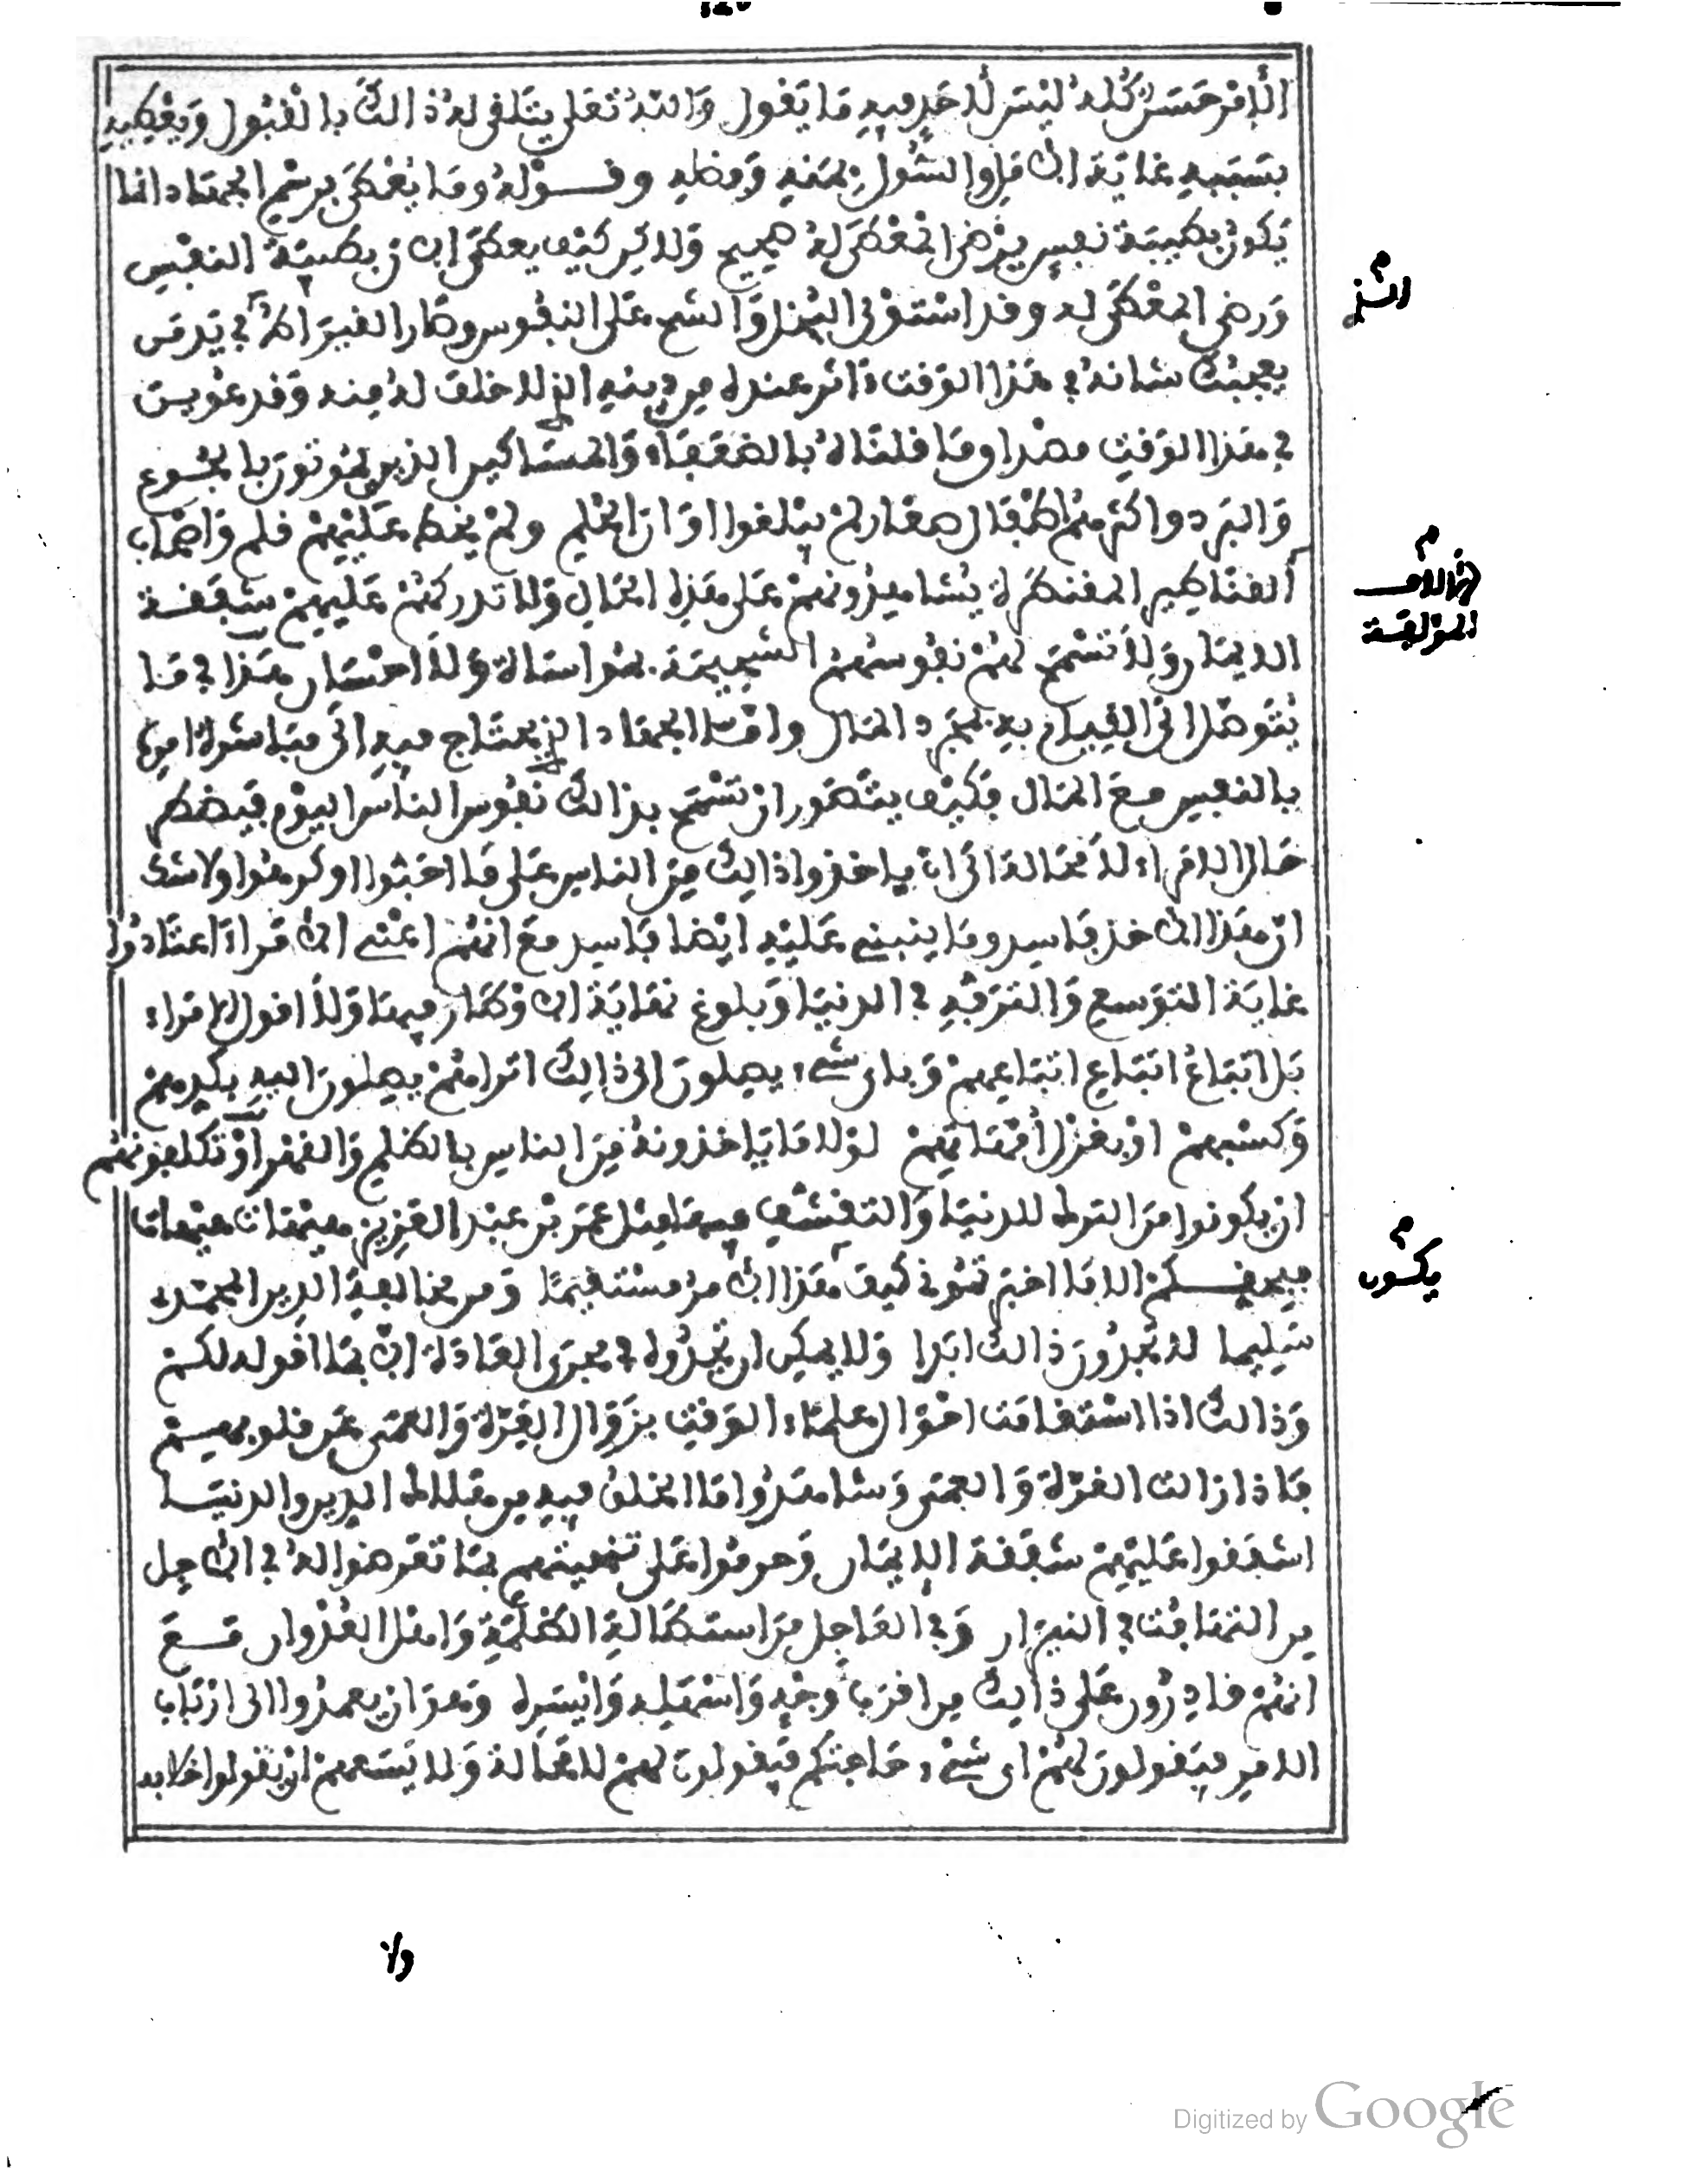 الامر حسن كله ليس لاحد فيه ما يقول والله تعلى يتلقى له ذالك بالقبول ويعطيه
بسببه غاية الامل والسول بمنه وفضله وقوله وما يعطى برسم الجهاد انما
يكون بطيبة نفس يرضى المعطى له صحيح ولاكن كيف يعطى الان بطيبة النفس
ورضى المعطى له وقد استولى البخل والشح على النفوس وصار القيراط في يد من
يعجبك شانه في هذا الوقت ءاثر عنده من دينه الذي لا خلف له منه وقد عويـن
في هذا الوقت مصداق ما قلناه بالضعفاء والمساكين الذين يموتون بالجوع
والبرد واكثرهم اطفال صغار لم يبلغوا اوان الحلم ولم يخط عليهم قلم واصحاب
القناطير المقنطرة يشاهدونهم على هذه الحال ولا تدركهم عليهم شفقة
الايمان ولا تسمح لهم نفوسهم الشحيحة بمواساة ولا احسان هذا في ما
يتوصل الى القيام به بمجرد المال واما الجهاد الذي يحتاج فيه الى مباشرة امره
بالنفس مع المال فكيف يتصور ان تسمح بذالك نفوس الناس اليوم فيضطر
حال الامراء لا محالة الى ان ياخذوا ذالك من الناس على ما احبوا او كرهوا ولا شك
ان هذا الاخذ فاسد وما ينبني عليه ايضا فاسد مع انهم اعني الامراء اعتادوا
غاية التوسع والترفه في الدنيا وبلوغ نهاية الاوطار فيها ولا اقول الامراء
بل اتباع اتباع اتباعهم وباي شيء يصلون الى ذالك اتراهم يصلون اليه بكدهم
وكسبهم او بغزل امهاتهم لولا ما ياخذونه من الناس بالظلم والقهر او تكلفونهم
ان يكونوا من الترك للدنيا والتقشف فيها مثل عمر بن عبد العزيز هيهات هيهات
فبحقكم الا ما اخبرتموني كيف هذا الامر مستقيما ومن مخالفة الدين المحمدي
سليما لا تجدون ذالك ابدا ولا يمكن ان تجدوه في مجرى العادة الا بما اقوله لكم
وذالك اذا استقامت احوال علماء الوقت بزوال الغرة والعمى عن قلوبهم
فاذا زالت الغرة والعمى وشاهدوا ما الخلق فيه من هلاك الدين والدنيا
اشفقوا عليهم شفقة الايمان وحرصوا على تنحيتهم مما تعرضوا له في الاجل
من التهافت في النيران وفي العاجل من استطالة الظلمة واهل العدوان مـع
انهم قادرون على ذالك من اقرب وجه واسهله وايسره وهو ان يعمدوا الى ارباب
الامر فيقولون لهم اي شيء حاجتكم فيقولون لهم لا محالة ولا يسعهم ان يقولوا خلافه
الشر
الالاف
المؤلفة
يكون
ولا
Digitized by Google